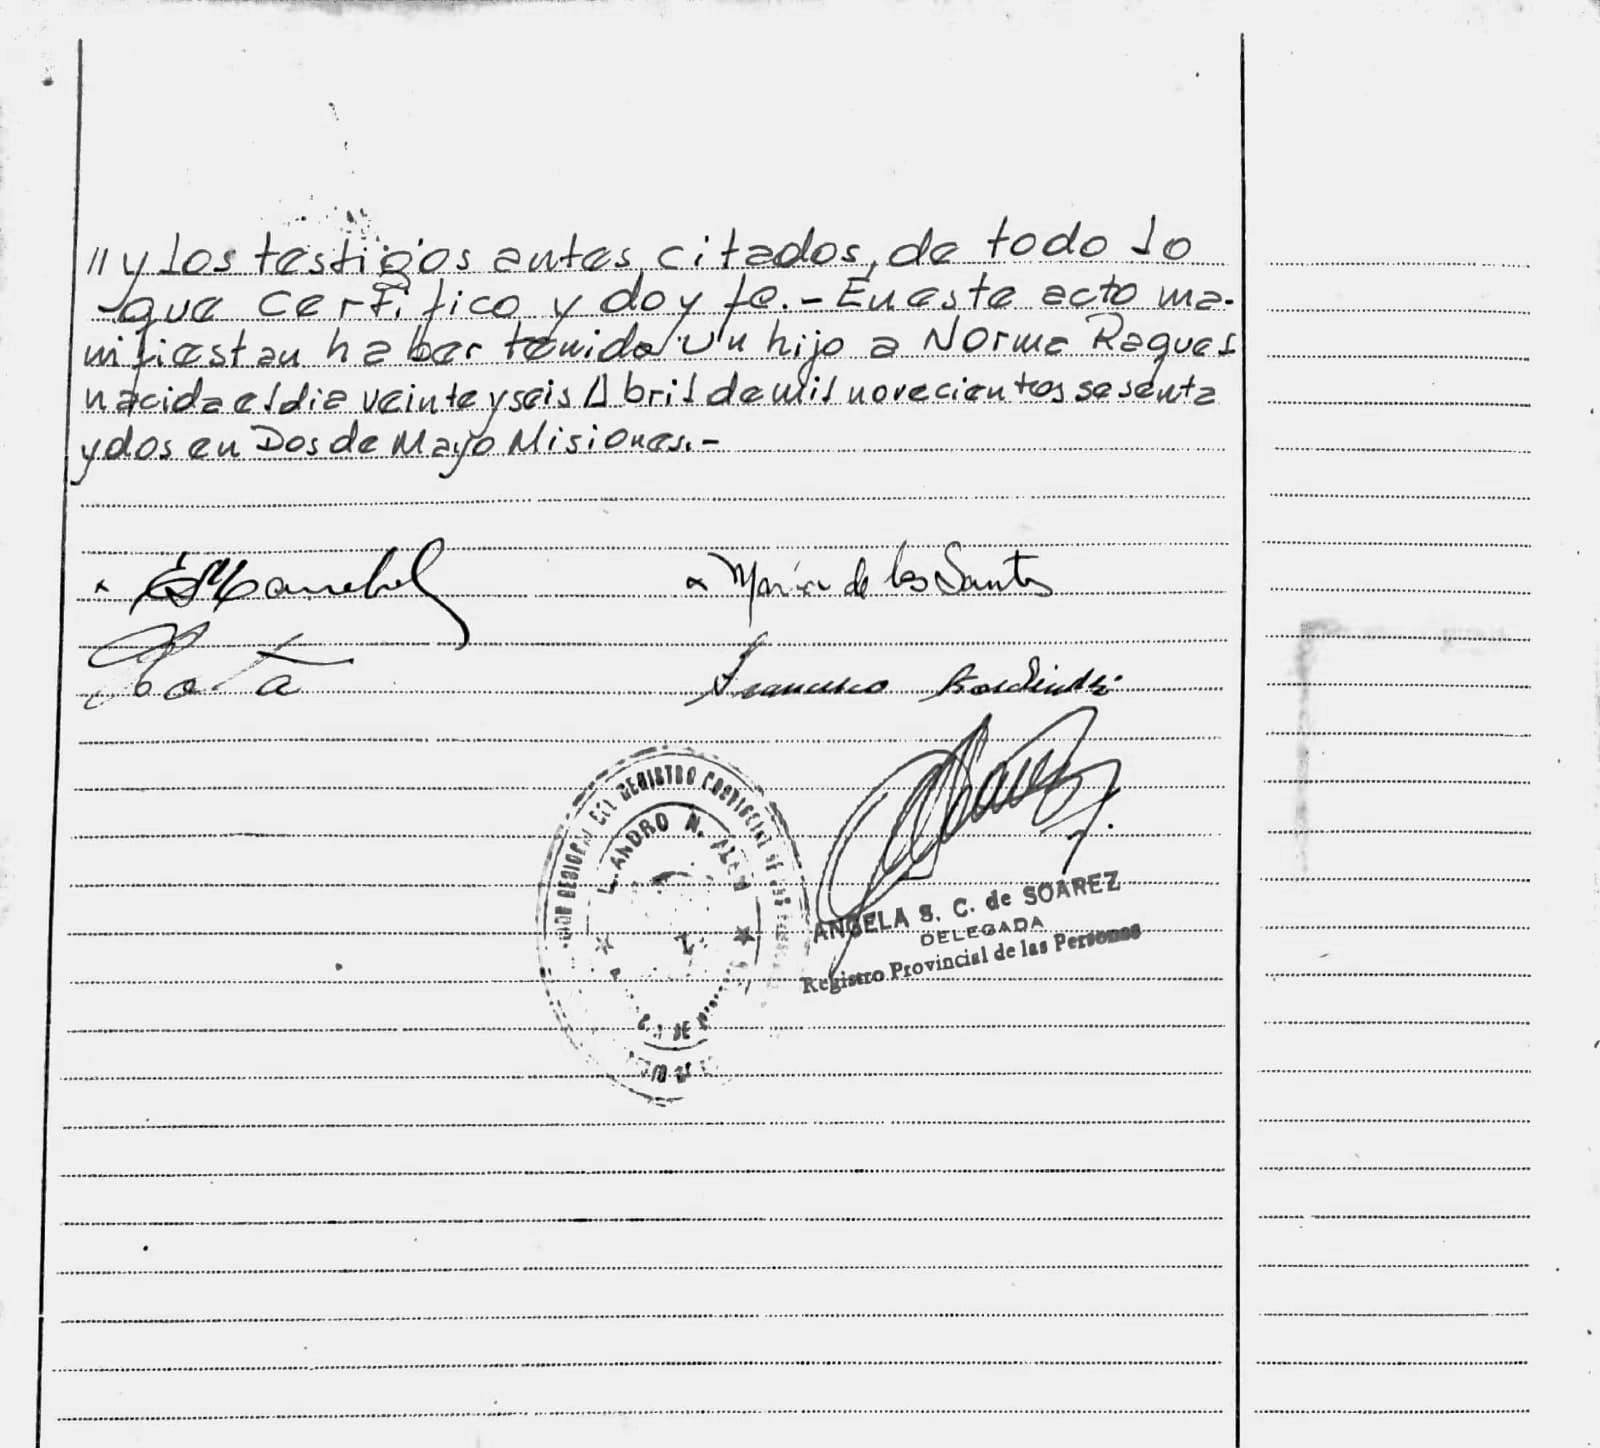 // y los testigos antes citados, de todo lo
que certifico y doy fe.- En este acto ma-
nifiestan haber tenido un hijo a Norma Raquel
nacida el dia veinte y seis Abril de mil novecientos sesenta
y dos en Dos de Mayo Misiones.-
María de los Santos
Francisco
REGISTRO PROVINCIAL DE LAS
LEANDRO N. ALEM
ANGELA S. C. de SOAREZ
DELEGADA
Registro Provincial de las Personas